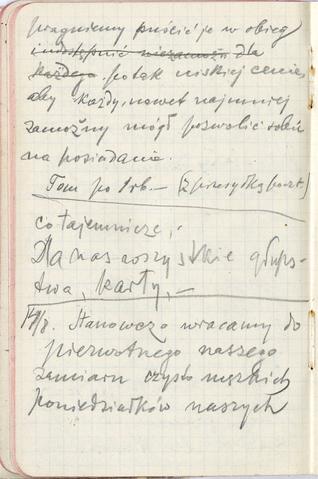 pragniemy puścić je w obieg
i udostępnić niezamożn dla
każdego. po tak niskiej cenie
aby każdy, nawet najmniej
zamożny mógł pozwolić sobie
na posiadanie.
Tom po 1 rb. — [z przesyłką poczt.]
co tajemnicze, -
Dla nas wszystkie głups-
twa, karty, —
14/8. Stanowczo wracamy do
pierwotnego naszego
zamiaru czysto męzkich
poniedziałków naszych